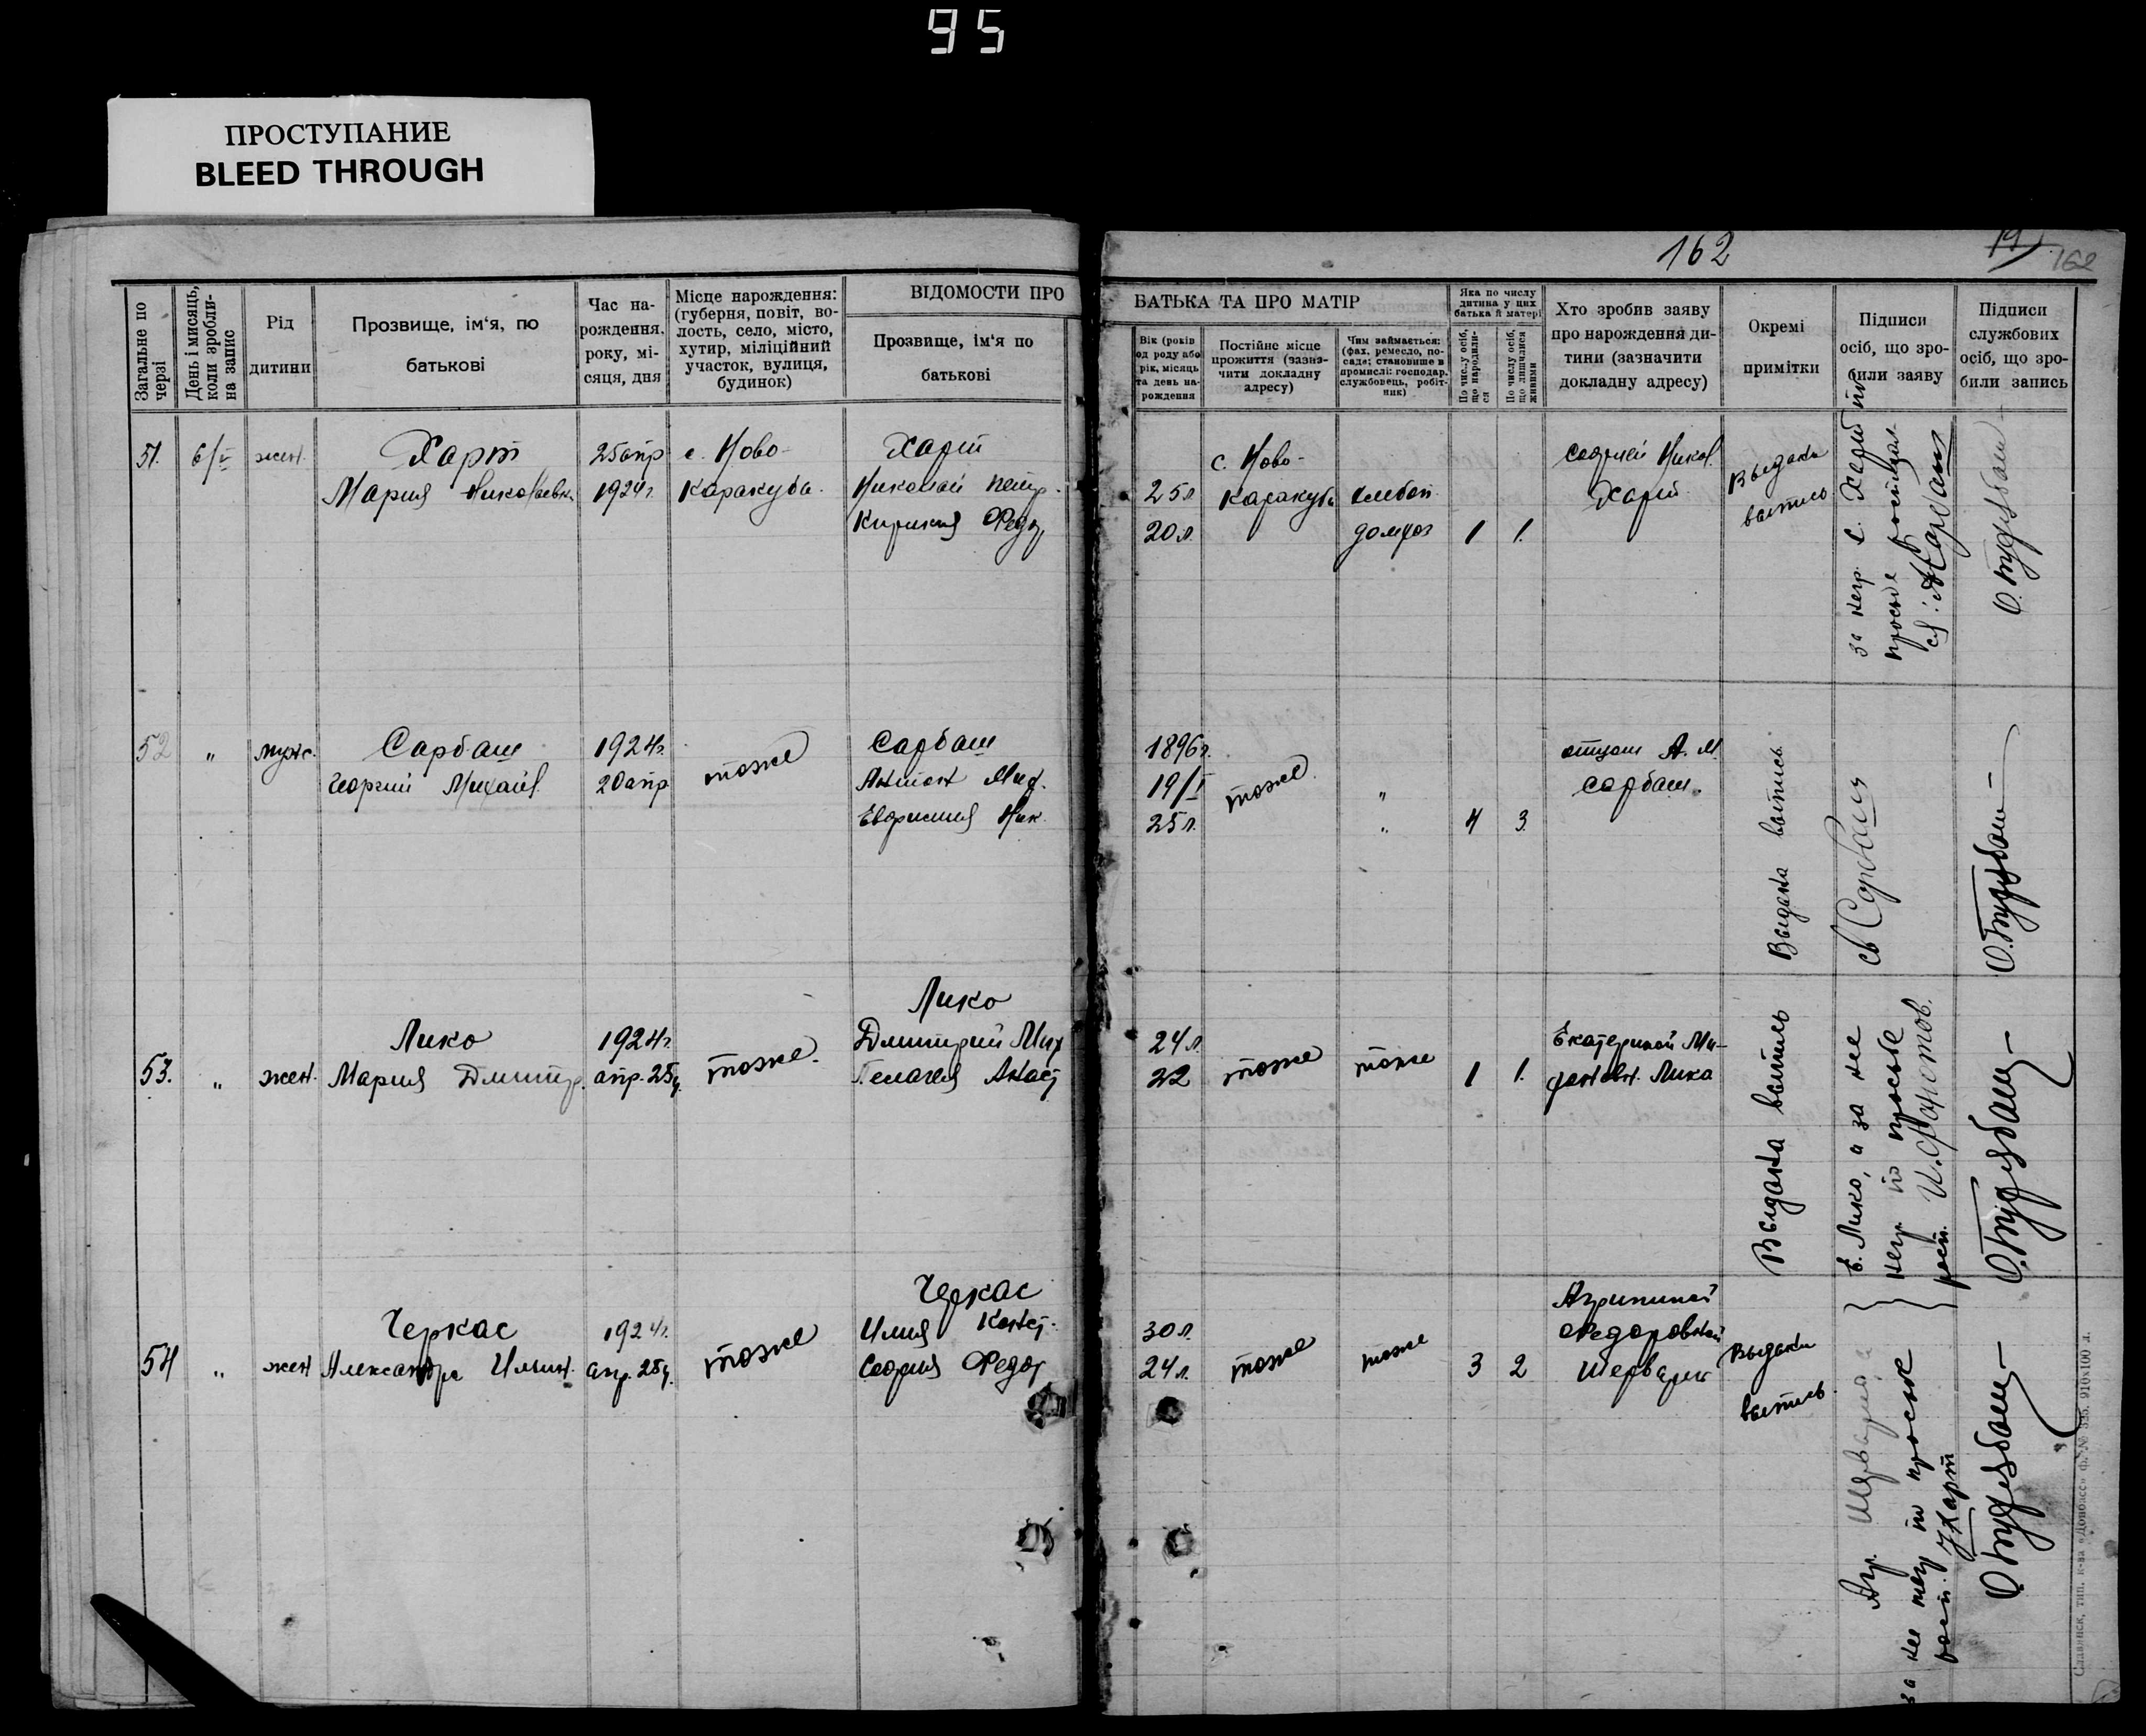 95
ПРОСТУПАНИЕ
BLEED THROUGH
162
19
162
Загальне по черзі
День і мисяць, коли зроблина запис
Рід дитини
Прозвище, ім‘я, по батькові
Час нарождення, року, місяця, дня
Місце нарождення: (губерня, повіт, волость, село, місто, хутир, міліційний участок, вулиця, будинок)
ВІДОМОСТИ ПРО
Прозвище, ім‘я по батькові
БАТЬКА ТА ПРО МАТІР
Вік (років од роду або рік, місяць та день нарождення
Постійне місце прожиття (зазначити докладну адресу)
Чим займається: (фах, ремесло, посада; становище в промислі: господар, службовець, робітник)
Яка по числу дитина у цих батька й матері
По числу осіб, що народилися
По числу осіб, що лишилися живими
Хто зробив заяву про народження дитини (зазначити докладну адресу)
Окремі примітки
Підписи осіб, що зробили заяву
Підписи службових осіб, що зробили запись
51. 6/V жен.
Харт
Мария Николаевн.
25 апр
1924 г.
с. Ново-
Каракуба.
Харт
Николай Петр.
Кирикия Федор
25 л.
20 л.
с. Ново-
Каракуба
хлебоп
домхоз
1 1.
Софией Никол.
Харт
Выдана
выпись
за негр. С. Харт по
просьбе
52 " муж.
Сарбаш
Георгий Михайл.
1924 г.
20 апр
тоже
Сарбаш
Антон Мих.
Евфимия Ник.
1896 г.
19/I
25 л.
тоже
"
"
4 3.
отцом А. М.
Сарбаш.
Выдана выпись
Сарбаш
53. " жен.
Лико
Мария Дмитр.
1924 г.
апр. 25 д.
тоже.
Лико
Дмитрий Мих
Пелагея Анаст
24 л.
22
тоже
тоже
1 1.
Екатериной Ми-
Лико
Выдана выпись
Е. Лико, а за нее
негр по просьбе
расп.
54 " жен
Черкас
Александра Ильин.
1924 г.
апр. 25 д.
тоже
Черкас
Илия Конст.
София Федор
30 л.
24 л.
тоже
тоже
3 2
Агрипиной
Федоровной
Шерварли
Выдана
выпись.
Агр.
за нее негр по просьбе
расп. Харт
Славянск, тип. к-ва «Донбасс» ф. № 395. 910×100 л.